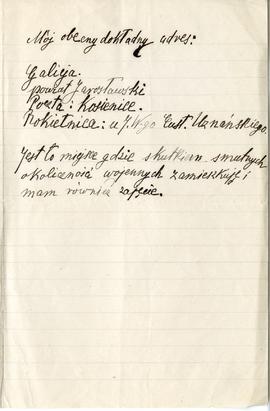 Mój obecny dokładny adres:
Galicja.
powiat Jarosławski
Poczta: Kosienice.
Rokietnica: u J. W-go Eust. Uznańskiego.
Jest to miejsce gdzie skutkiem smutnych
okoliczność wojennych zamieszkuję i
mam również zajęcie.